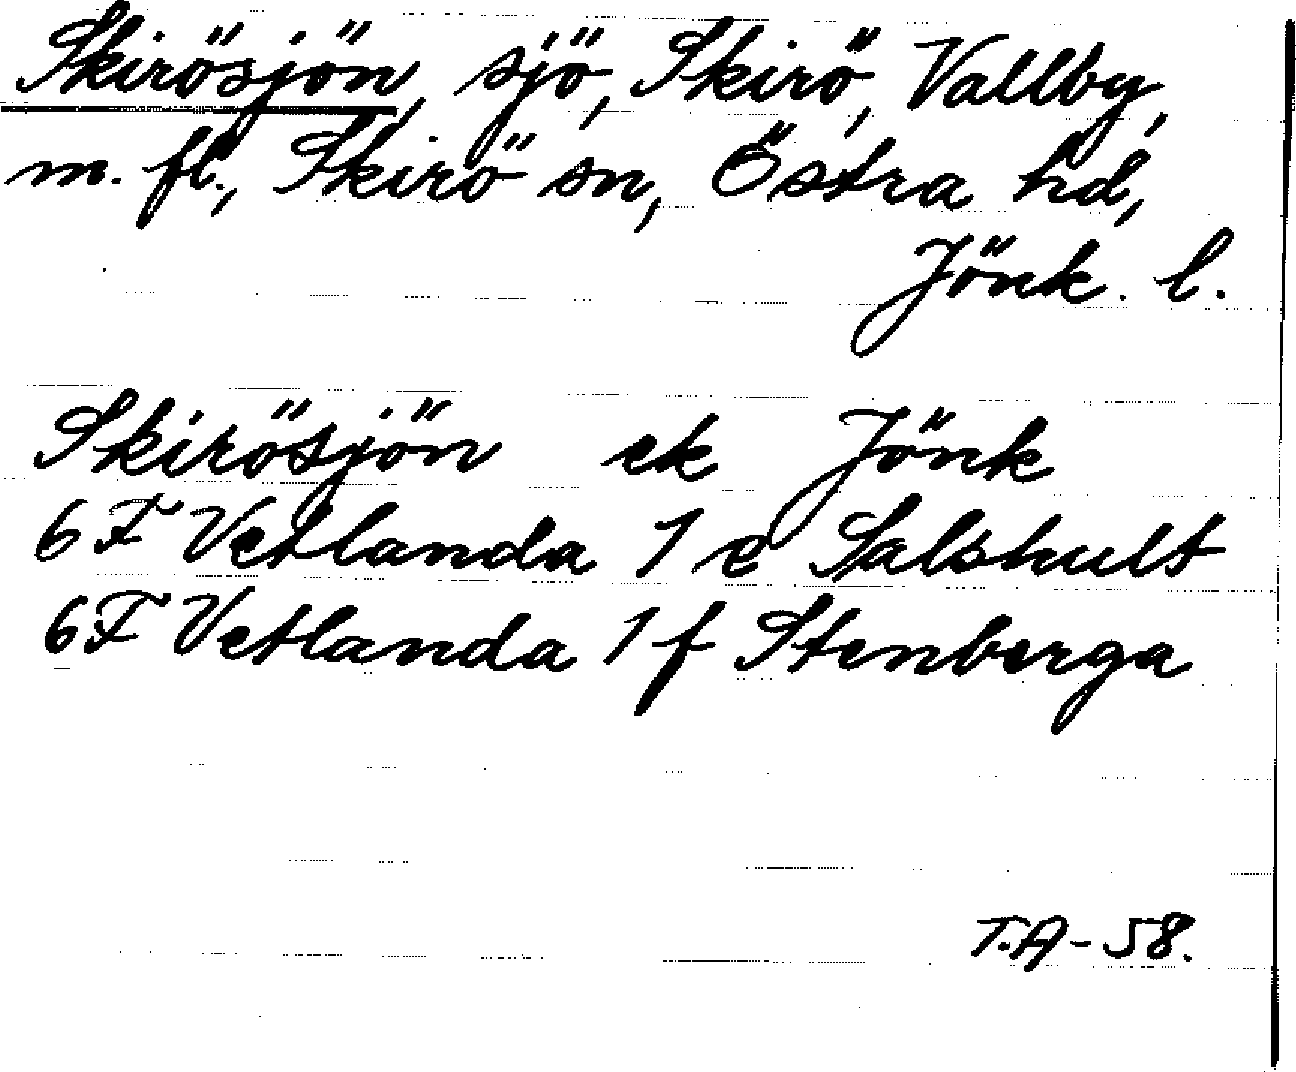 Skirösjön, sjö, Skirö, Vallby,
m. fl., Skirö sn, Östra hd,
Jönk. l.
Skirösjön ek Jönk
6 F Vetlanda 1 e Salshult
6 F Vetlanda 1 f Stenberga
T.A-58.